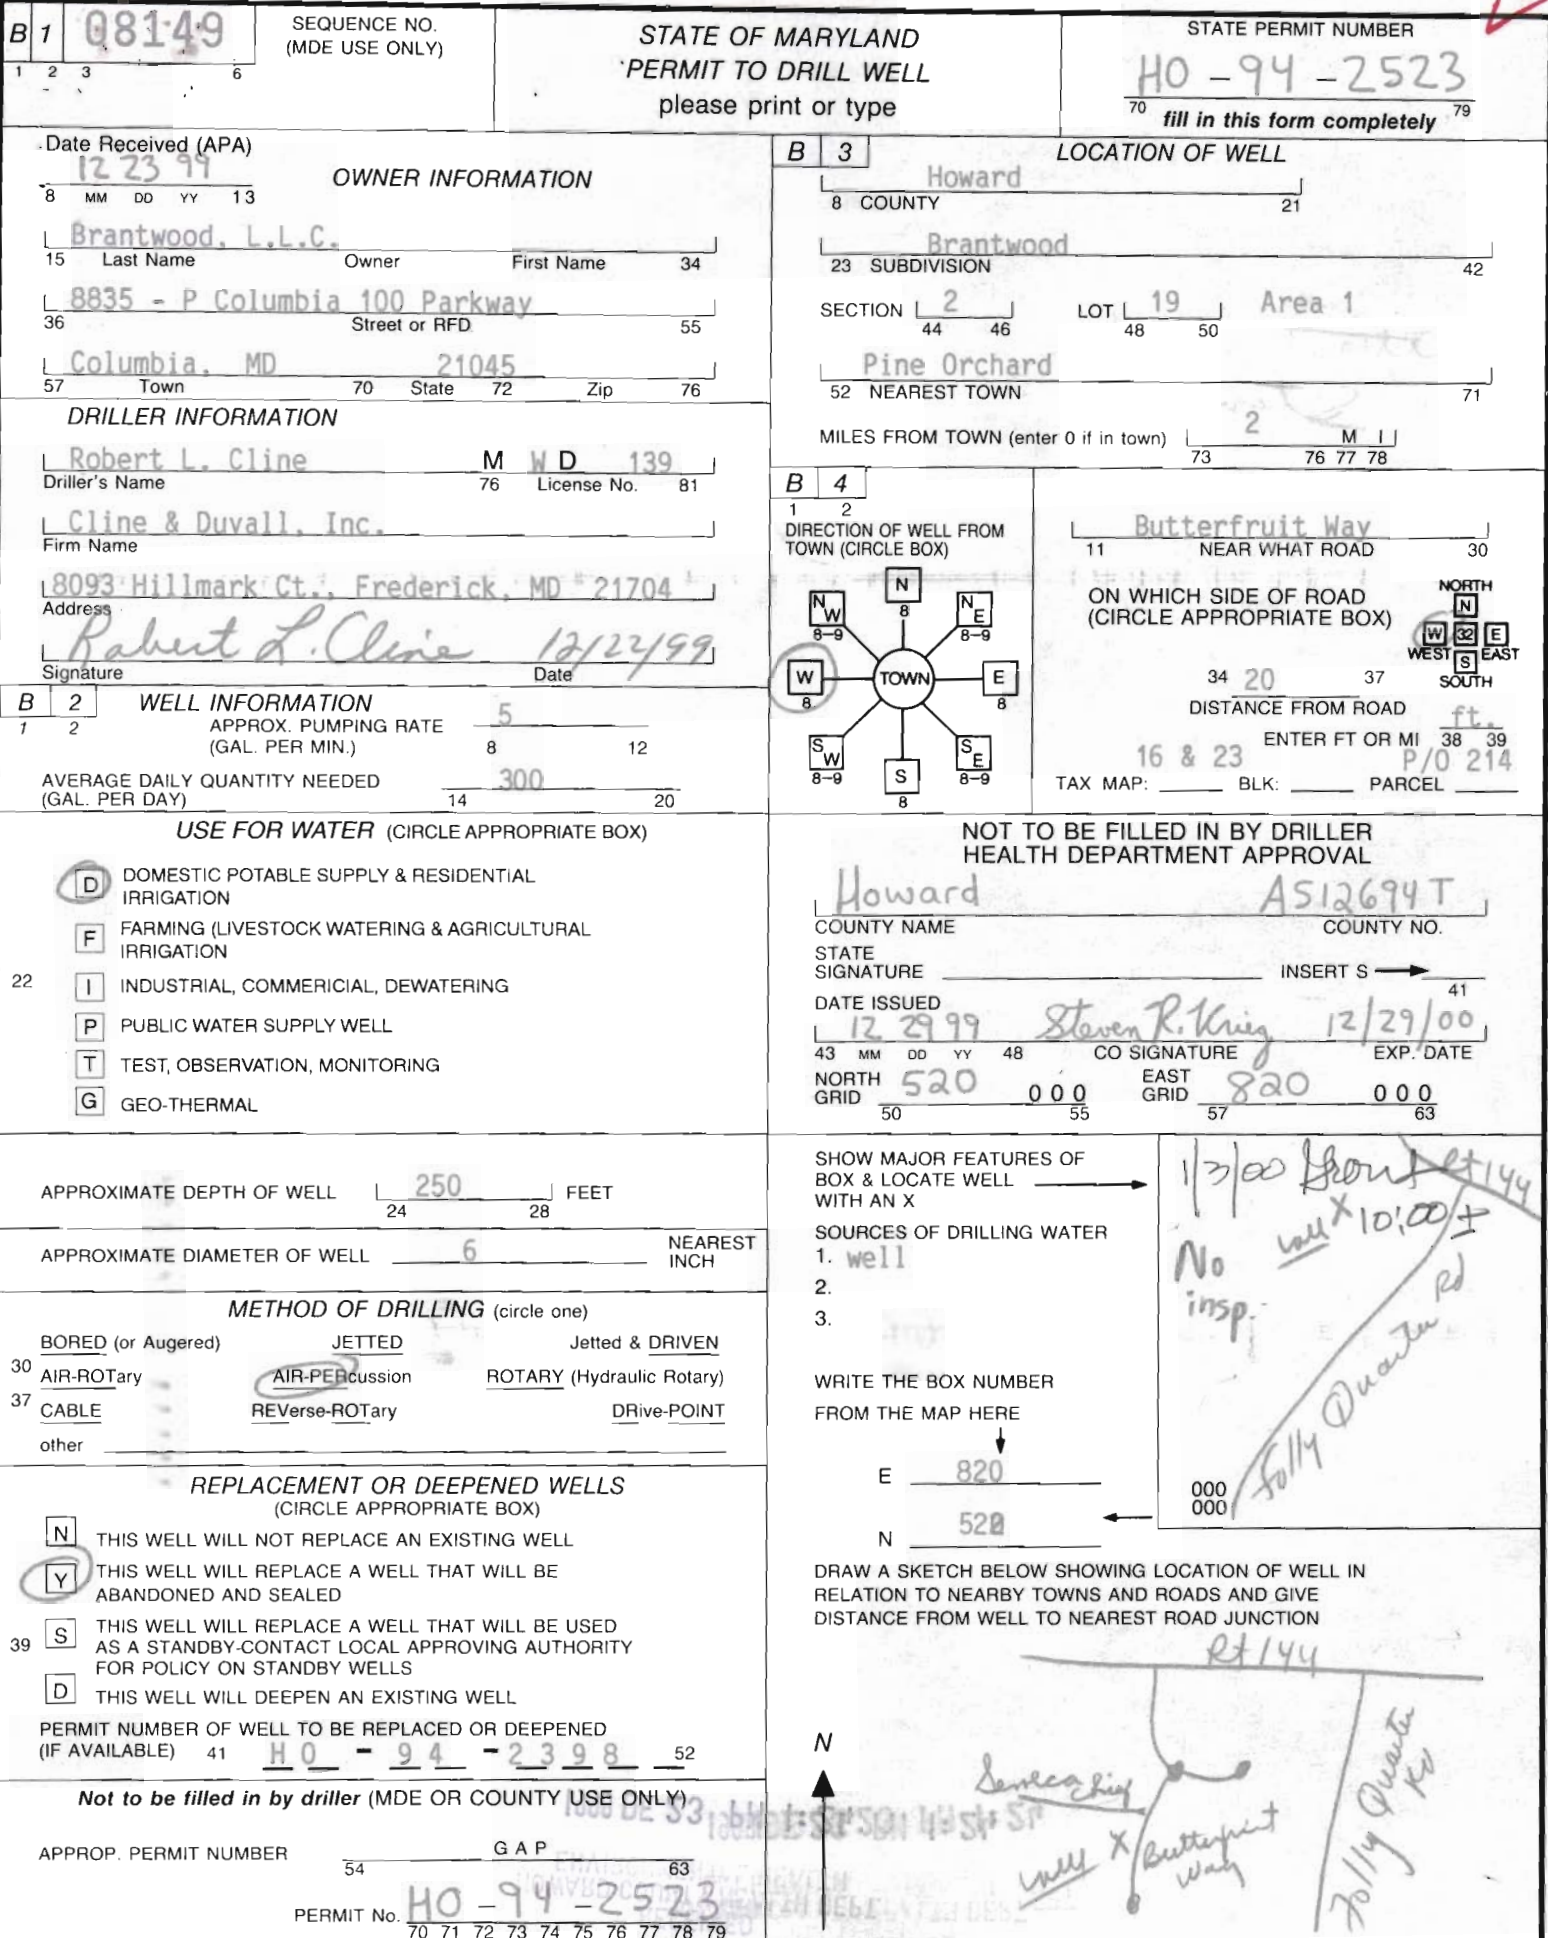 B 1 08149 SEQUENCE NO. (MDE USE ONLY)
1 2 3 6
STATE OF MARYLAND
PERMIT TO DRILL WELL
please print or type
STATE PERMIT NUMBER
HO - 94 - 2523
70 79
fill in this form completely
Date Received (APA)
12 23 99
8 MM DD YY 13
OWNER INFORMATION
Brantwood, L.L.C.
15 Last Name Owner First Name 34
8835 - P Columbia 100 Parkway
36 Street or RFD 55
Columbia, MD 21045
57 Town 70 State 72 Zip 76
DRILLER INFORMATION
Robert L. Cline M W D 139
Driller's Name 76 License No. 81
Cline & Duvall, Inc.
Firm Name
8093 Hillmark Ct., Frederick, MD 21704
Address
Robert L. Cline 12/22/99
Signature Date
B 2 WELL INFORMATION
1 2 APPROX. PUMPING RATE 5
(GAL. PER MIN.) 8 12
AVERAGE DAILY QUANTITY NEEDED 300
(GAL. PER DAY) 14 20
USE FOR WATER (CIRCLE APPROPRIATE BOX)
D DOMESTIC POTABLE SUPPLY & RESIDENTIAL
IRRIGATION
F FARMING (LIVESTOCK WATERING & AGRICULTURAL
IRRIGATION
22 I INDUSTRIAL, COMMERICIAL, DEWATERING
P PUBLIC WATER SUPPLY WELL
T TEST, OBSERVATION, MONITORING
G GEO-THERMAL
APPROXIMATE DEPTH OF WELL 250 FEET
24 28
APPROXIMATE DIAMETER OF WELL 6 NEAREST INCH
METHOD OF DRILLING (circle one)
BORED (or Augered) JETTED Jetted & DRIVEN
30 AIR-ROTary AIR-PERcussion ROTARY (Hydraulic Rotary)
37 CABLE REVerse-ROTary DRive-POINT
other
REPLACEMENT OR DEEPENED WELLS
(CIRCLE APPROPRIATE BOX)
N THIS WELL WILL NOT REPLACE AN EXISTING WELL
Y THIS WELL WILL REPLACE A WELL THAT WILL BE
ABANDONED AND SEALED
39 S THIS WELL WILL REPLACE A WELL THAT WILL BE USED
AS A STANDBY-CONTACT LOCAL APPROVING AUTHORITY
FOR POLICY ON STANDBY WELLS
D THIS WELL WILL DEEPEN AN EXISTING WELL
PERMIT NUMBER OF WELL TO BE REPLACED OR DEEPENED
(IF AVAILABLE) 41 HO - 94 - 2398 52
Not to be filled in by driller (MDE OR COUNTY USE ONLY)
APPROP. PERMIT NUMBER G A P
54 63
PERMIT No. HO - 94 - 2523
70 71 72 73 74 75 76 77 78 79
B 3 LOCATION OF WELL
Howard
8 COUNTY 21
Brantwood
23 SUBDIVISION 42
SECTION 2 LOT 19 Area 1
44 46 48 50
Pine Orchard
52 NEAREST TOWN 71
MILES FROM TOWN (enter 0 if in town) 2 M I
73 76 77 78
B 4
1 2
DIRECTION OF WELL FROM
TOWN (CIRCLE BOX)
N 8
NW 8-9 NE 8-9
W 8 TOWN E 8
SW 8-9 SE 8-9
S 8
Butterfruit Way
11 NEAR WHAT ROAD 30
ON WHICH SIDE OF ROAD
(CIRCLE APPROPRIATE BOX)
NORTH
N
W 32 E
WEST S EAST
SOUTH
34 20 37
DISTANCE FROM ROAD ft.
ENTER FT OR MI 38 39
16 & 23 P/O 214
TAX MAP: BLK: PARCEL
NOT TO BE FILLED IN BY DRILLER
HEALTH DEPARTMENT APPROVAL
Howard A512694T
COUNTY NAME COUNTY NO.
STATE
SIGNATURE INSERT S
41
DATE ISSUED
12 29 99 Steven R. Krieg 12/29/00
43 MM DD YY 48 CO SIGNATURE EXP. DATE
NORTH GRID 520 000 EAST GRID 820 000
50 55 57 63
SHOW MAJOR FEATURES OF
BOX & LOCATE WELL
WITH AN X
SOURCES OF DRILLING WATER
1. well
2.
3.
WRITE THE BOX NUMBER
FROM THE MAP HERE
E 820
N 520
1/3/00 Grout Rt 144
well X 10:00 ±
No
insp.
Folly Quarter Rd
000
000
DRAW A SKETCH BELOW SHOWING LOCATION OF WELL IN
RELATION TO NEARBY TOWNS AND ROADS AND GIVE
DISTANCE FROM WELL TO NEAREST ROAD JUNCTION
Rt 144
N
Seneca Chief
well X Butterfruit
Way
Folly Quarter
Rd